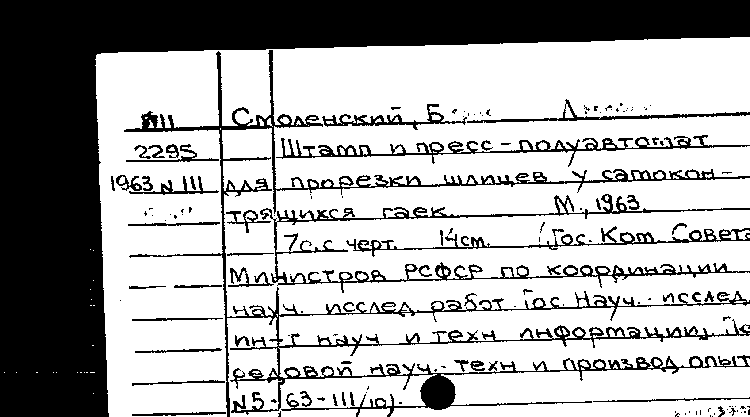 П11 Смоленский, Б
2295 Штамп и пресс-полуавтомат
1963 N III для прорезки шлицев у самокон-
трящихся гаек. М., 1963.
7с. с черт. 14см. (Гос. Ком. Совета
Министров РСФСР по координации
науч. исслед работ. Гос. Науч.-исслед
ин-т науч и техн информации. Пе
редовой науч.-техн и производ. опыт
N5-63-111/10).